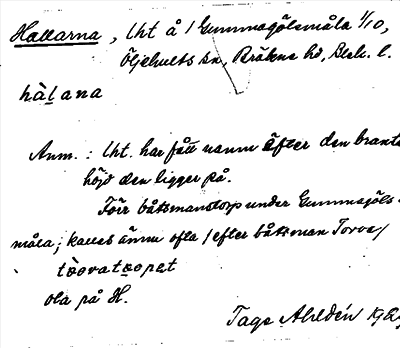 Hallarna, lht å 1 Gummagölsmåla 1/10,
Öljehults sn, Bräkne hd, Blek. l.
hàḷana
Anm.: Lht. har fått namn efter den branta
höjd den ligger på.
Förr båtsmanstorp under Gummagöls-
måla; kallas ännu ofta /efter båtsman Torva/
tòovatɷopet
ola på H.
Tage Ahldén